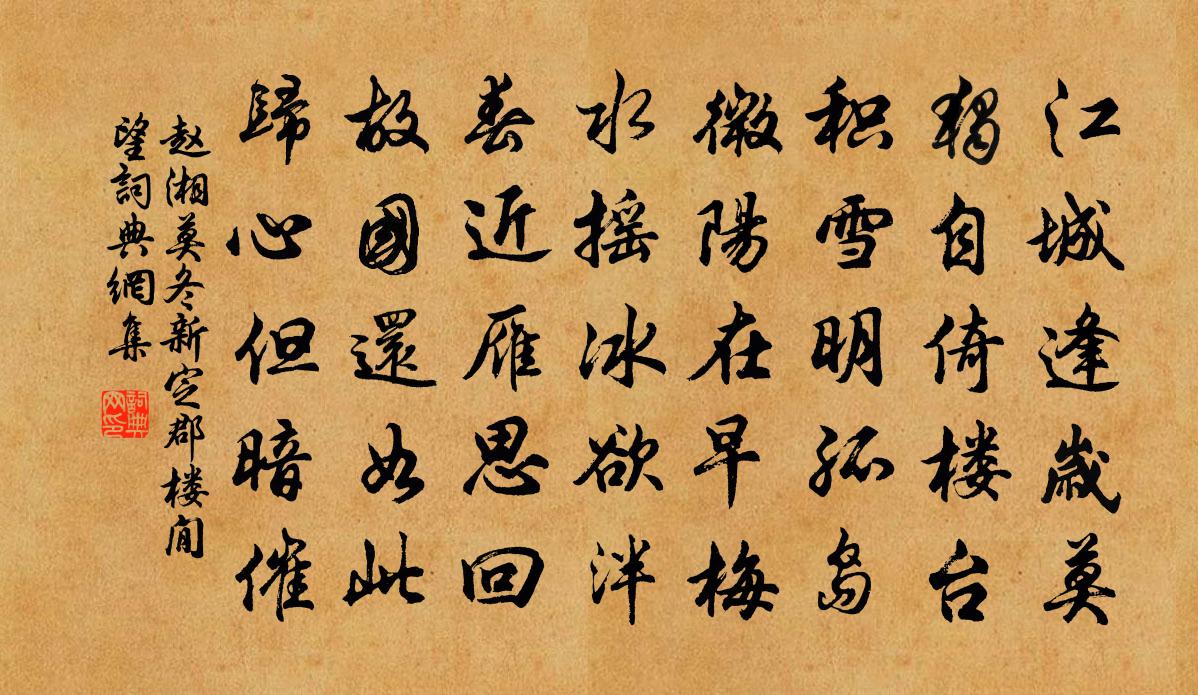 江城逢歲莫
獨自倚楼台
积雪明孤島
微陽在早梅
水摇冰欲泮
春近雁思回
故國還如此
歸心但暗催
赵湘莫冬新定郡楼閒
望詞典網集
詞典网印